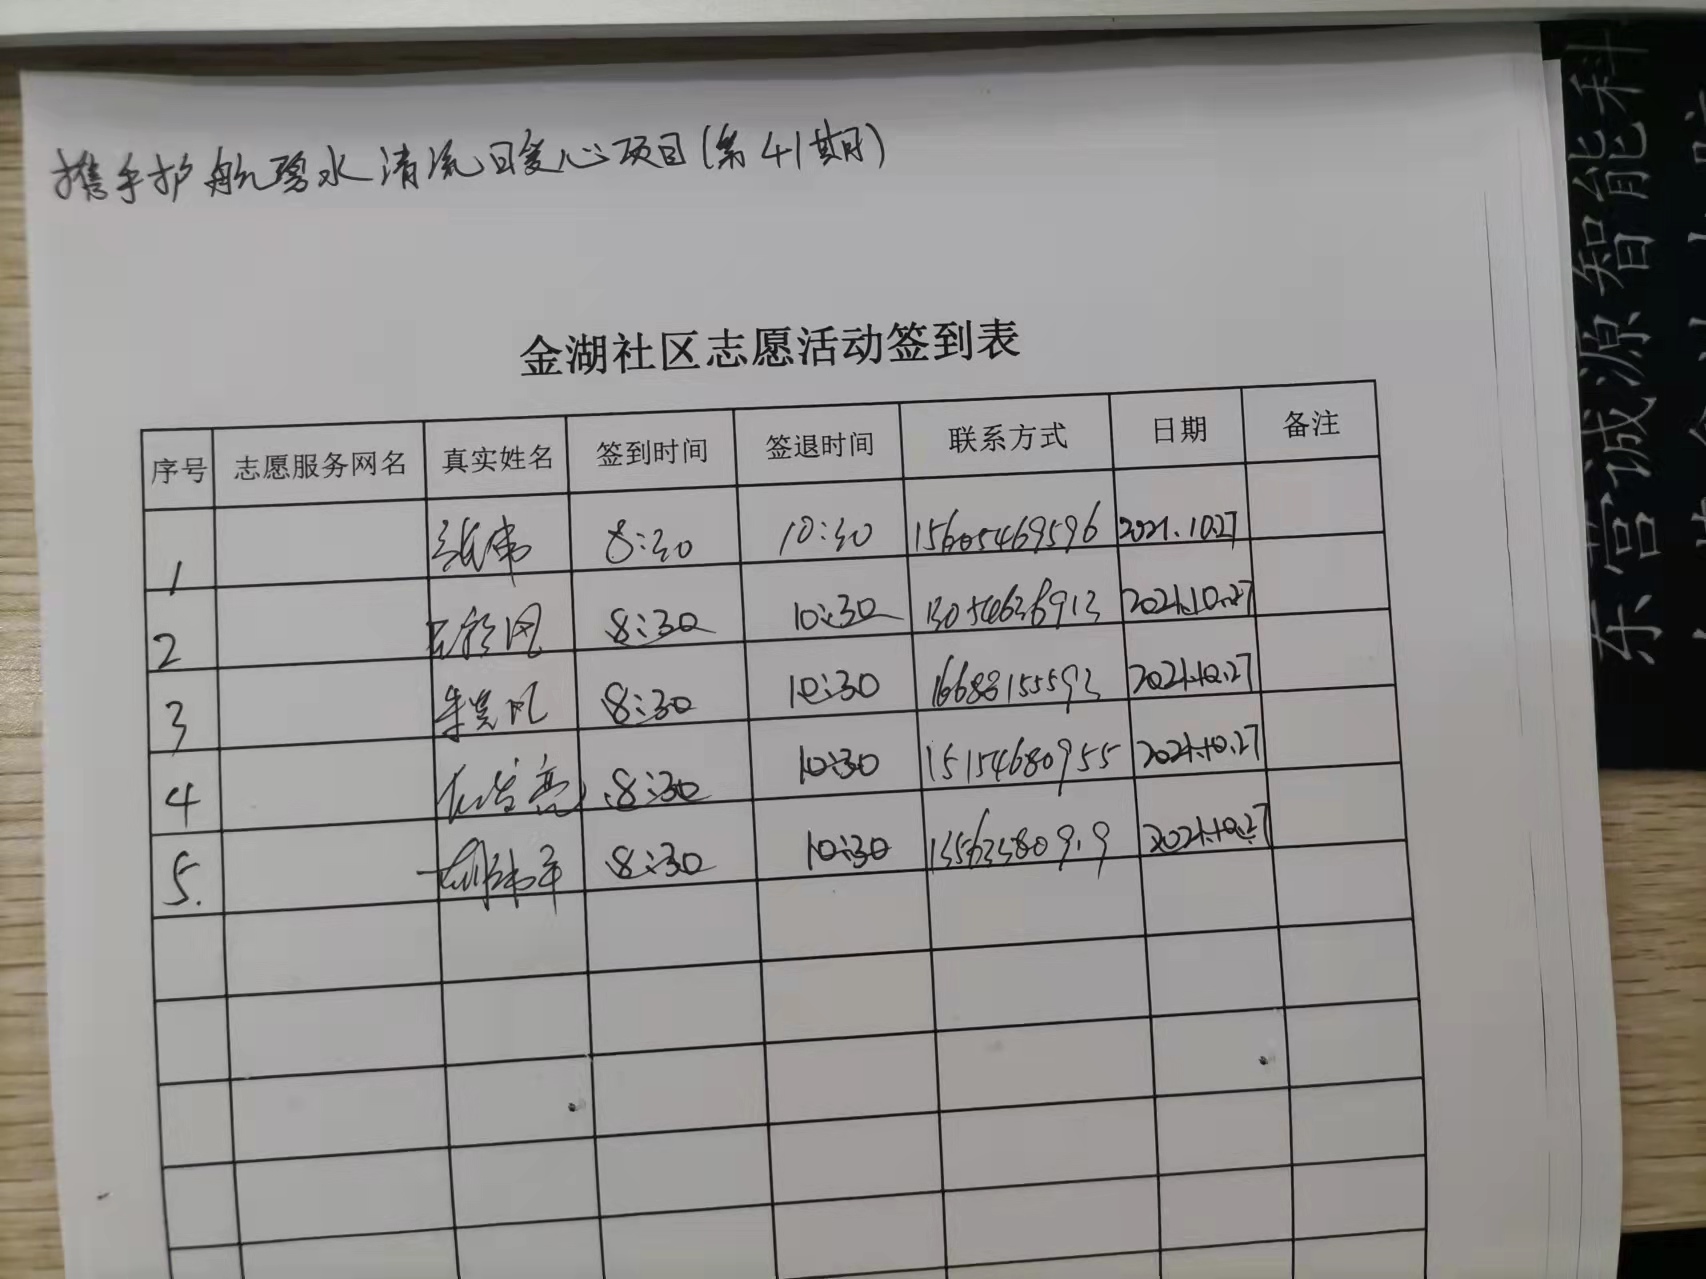 携手护航碧水清流暖心项目(第41期)
金湖社区志愿活动签到表
序号 志愿服务网名 真实姓名 签到时间 签退时间 联系方式 日期 备注
1 张伟 8:30 10:30 15605469596 2021.10.27
2 8:30 10:30 13054636913 2021.10.27
3 8:30 10:30 16688155593 2021.10.27
4 8:30 10:30 15154680955 2021.10.27
5. 8:30 10:30 2021.10.27
东营诚源智能科